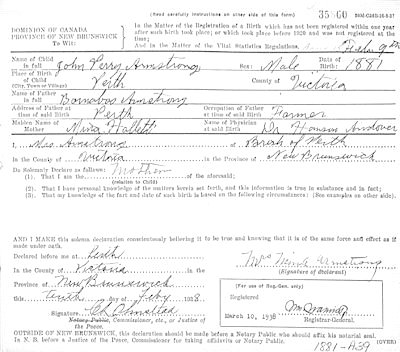 (Read carefully instructions on other side.)
35860
DOMINION OF CANADA
PROVINCE OF NEW BRUNSWICK
To Wit:
In the Matter of the Registration of a Birth which has not been registered within one year after such birth; or which took place before 1920 and was not registered at the time;
And in the Matter of the Vital Statistics Regulations.
Name of Child in full John Perry Armstrong Sex: Male Date of Birth: Feb 9th 1881
Place of Birth of Child Perth County of Victoria
(City, Town or Village)
Name of Father in full Barnabas Armstrong
Address of Father at time of said Birth Perth Occupation of Father at time of said Birth Farmer
Maiden Name of Mother Mina Hallett Name of Physician at said Birth Dr Andover
I, Mrs. Armstrong of Parish of Perth
in the County of Victoria in the Province of New Brunswick
Do Solemnly Declare as follows:
(1). That I am the Mother of the aforesaid;
(relation to Child)
(2). That I have personal knowledge of the matters herein set forth, and this information is true in substance and in fact;
(3). That my knowledge of the fact and date of such birth is based on the following circumstances: (See examples on other side).
AND I MAKE this solemn declaration conscientiously believing it to be true and knowing that it is of the same force and effect as if made under oath.
Declared before me at Perth
In the County of Victoria
Province of New Brunswick
this tenth day of Feby 1938
Olmstead
Notary Public, Commissioner, etc., or Justice of the Peace.
Mrs Armstrong
(Signature of declarant).
(For use of Reg.-Gen. only)
Registered
March 10, 1938
Registrar-General.
OUTSIDE OF NEW BRUNSWICK, this declaration should be made before a Notary Public who should affix his notarial seal.
In N. B. before a Justice of the Peace, Commissioner for taking affidavits or Notary Public.
(OVER)
1881-A39